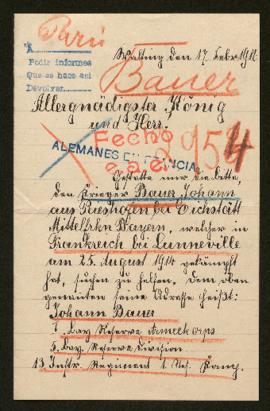 París
Pedir informes
Que se haga así
Devolver
Walting den 17. Febr. 191
Bauer
Allergnädigster König
und Herr!
Fecho
954
ALEMANES EN FRANCIA
Gestatte mir die Bitte,
den Krieger Bauer Johann
aus Pietenfeld bei Eichstätt
Mittelfrkn Bayern, welcher in
Frankreich bei Lunneville
am 25. August 1914 gekämpft
hat, suchen zu helfen. Dem oben
genannten seine Adresse heißt:
Johann Bauer
1. bay Reserve Armeekorps
5. bay. Reserve Division
Inftr. Regiment 1. Res. Komp.